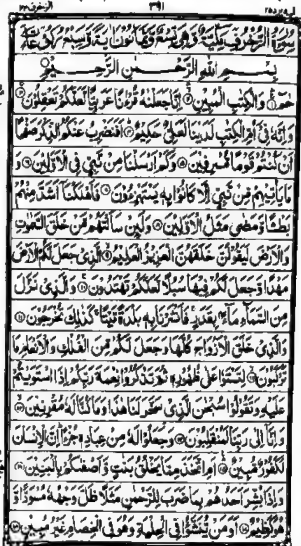 الزخرف ٤٣ ٣٩١ اليه يرد ٢٥
سورة الزخرف مكية وهي تسع وثمانون آية وسبع ركوعات
بسم الله الرحمن الرحيم
حم والكتب المبين انا جعلنه قرءنا عربيا لعلكم تعقلون
وانه في ام الكتب لدينا لعلي حكيم افنضرب عنكم الذكر صفحا
ان كنتم قوما مسرفين وكم ارسلنا من نبي في الاولين و
ما ياتيهم من نبي الا كانوا به يستهزءون فاهلكنا اشد منهم
بطشا ومضى مثل الاولين ولئن سالتهم من خلق السموت
والارض ليقولن خلقهن العزيز العليم الذي جعل لكم الارض
مهدا وجعل لكم فيها سبلا لعلكم تهتدون والذي نزل
من السماء ماء بقدر فانشرنا به بلدة ميتا كذلك تخرجون
والذي خلق الازواج كلها وجعل لكم من الفلك والانعام ما
تركبون لتستوا على ظهوره ثم تذكروا نعمة ربكم اذا استويتم
عليه وتقولوا سبحن الذي سخر لنا هذا وما كنا له مقرنين
وانا الى ربنا لمنقلبون وجعلوا له من عباده جزءا ان الانسان
لكفور مبين ام اتخذ مما يخلق بنت واصفكم بالبنين
واذا بشر احدهم بما ضرب للرحمن مثلا ظل وجهه مسودا و
هو كظيم اومن ينشؤا في الحلية وهو في الخصام غير مبين